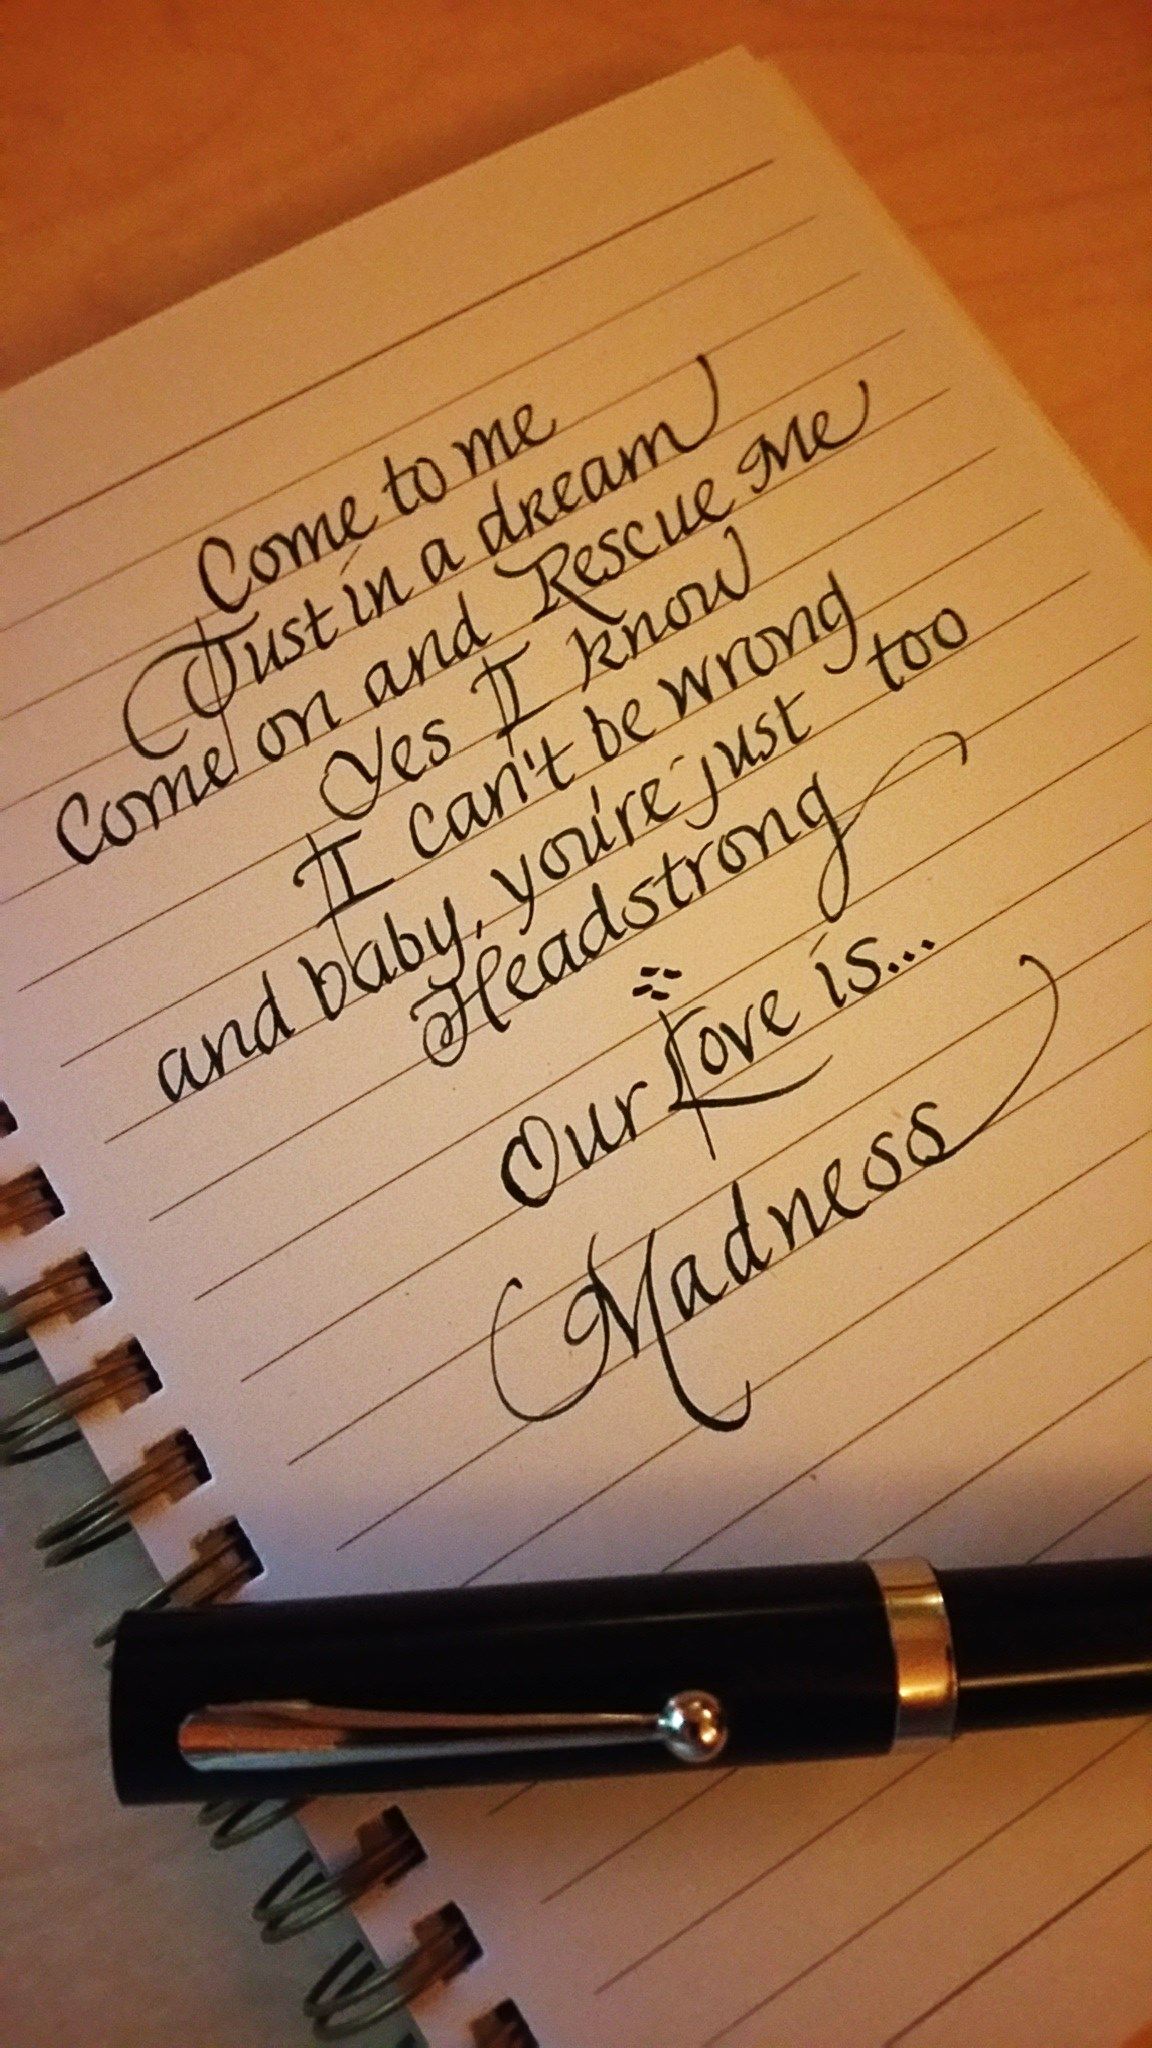 Come to me
Just in a dream
Come on and Rescue Me
Yes I know
I can't be wrong
and baby, you're just too
Headstrong
Our Love is...
Madness